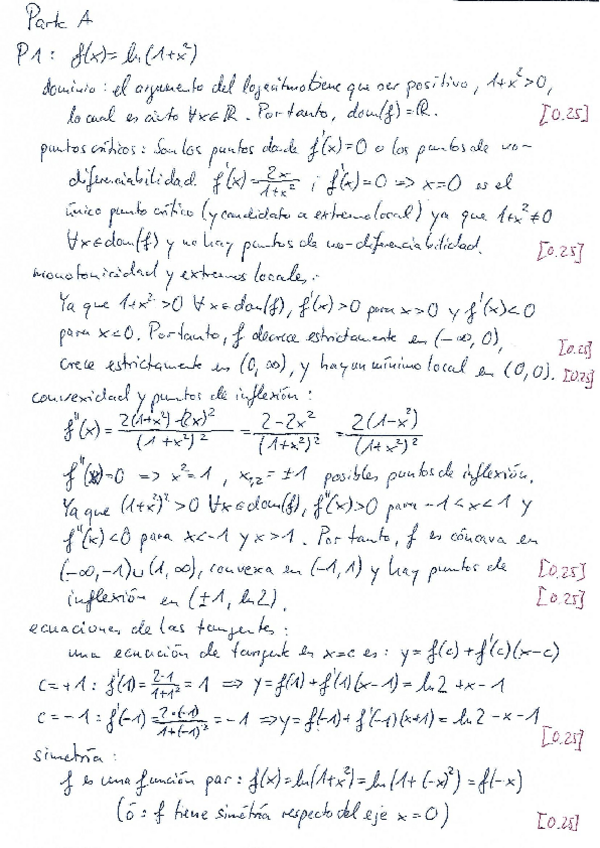 Parte A
P1: f(x)=ln(1+x²)
dominio: el argumento del logaritmo tiene que ser positivo, 1+x²>0,
lo cual es cierto ∀x∈ℝ. Por tanto, dom(f)=ℝ. [0.25]
puntos críticos: Son los puntos donde f'(x)=0 o los puntos de no-
diferenciabilidad. f'(x)=2x/(1+x²); f'(x)=0 => x=0 es el
único punto crítico (y candidato a extremo local) ya que 1+x²≠0
∀x∈dom(f) y no hay puntos de no-diferenciabilidad. [0.25]
monotonicidad y extremos locales:
Ya que 1+x²>0 ∀x∈dom(f), f'(x)>0 para x>0 y f'(x)<0
para x<0. Por tanto, f decrece estrictamente en (-∞, 0), [0.25]
crece estrictamente en (0, ∞), y hay un mínimo local en (0,0). [0.25]
convexidad y puntos de inflexión:
f''(x)= (2(1+x²)-(2x)²)/(1+x²)² = (2-2x²)/(1+x²)² = 2(1-x²)/(1+x²)²
f''(x)=0 => x²=1, x₁,₂=±1 posibles puntos de inflexión.
Ya que (1+x²)²>0 ∀x∈dom(f), f''(x)>0 para -1<x<1 y
f''(x)<0 para x<-1 y x>1. Por tanto, f es cóncava en
(-∞,-1)∪(1,∞), convexa en (-1,1) y hay puntos de [0.25]
inflexión en (±1, ln2). [0.25]
ecuaciones de las tangentes:
una ecuación de tangente en x=c es: y=f(c)+f'(c)(x-c)
c=+1: f'(1)=2·1/(1+1²)=1 => y=f(1)+f'(1)(x-1)=ln2+x-1
c=-1: f'(-1)=2·(-1)/(1+(-1)²)=-1 => y=f(-1)+f'(-1)(x+1)=ln2-x-1
[0.25]
simetría:
f es una función par: f(x)=ln(1+x²)=ln(1+(-x)²)=f(-x)
(ó: f tiene simétria respecto del eje x=0) [0.25]